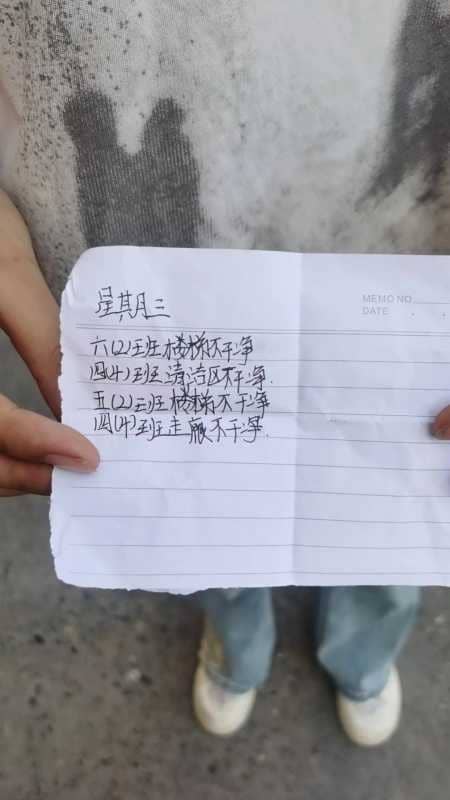 星期三
MEMO NO.
DATE . .
六(2)班楼梯不干净
四(4)班清洁区不干净.
五(2)班楼梯不干净
四(4)班走廊不干净.